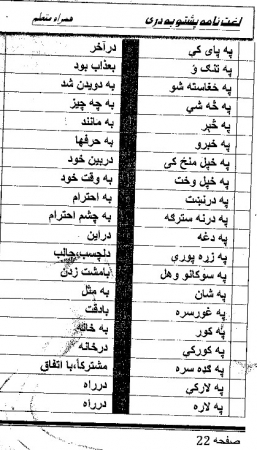 لغت نامه پشتو به دری همراه متعلم
په پای کی درآخر
په تنگ ؤ بعذاب بود
په خغاسته شو به دویدن شد
په څه شي به چه چیز
په څېر به مانند
په خبرو به حرفها
په خپل منځ کی دربین خود
په خپل وخت به وقت خود
په درنښت به احترام
په درنه سترگه به چشم احترام
په دغه دراین
په زړه پوری دلچسب،جالب
په سوکانو وهل بامشت زدن
په شان به مثل
په غورسره بادقت
په کور به خانه
په کورکي درخانه
په گډه سره مشترکاً،با اتفاق
په لارکي درراه
په لاره درراه
صفحه 22